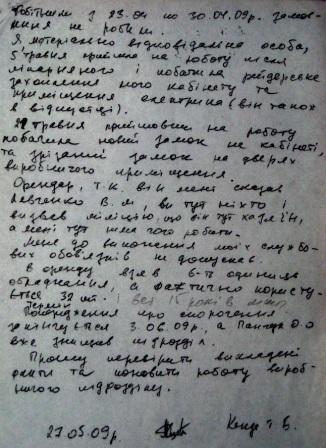 робітники з 23.04 по 30.04.09р. замов-
лення не робили.
Я матеріально відповідальна особа,
5 травня прийшла на роботу після
лікарняного і побачила рейдерське
захоплення мого кабінету та
приміщення електрика (він також
в відпустці).
травня прийшовши на роботу
побачила новий замок на кабінеті,
та зрізаний замок на дверях
виробничого приміщення.
Орендар, т.к. він мені сказав
Левченко В.М, ви тут ніхто і
визвав міліцію, що він тут хазяїн,
а мені тут нема чого робити.
Мене до виконання моїх службо-
вих обов'язків не допускає.
В оренду взяв 6-ть одиниць
обладнання, а фактично користу-
ється 32 шт. і всі 15 років в
Термін
Попередження про скорочення
закінчується 3.06.09р., а О.О
вже знищив підрозділ.
Прошу перевірити викладені
факти та поновити роботу вироб-
ничого підрозділу.
27.05.09р.